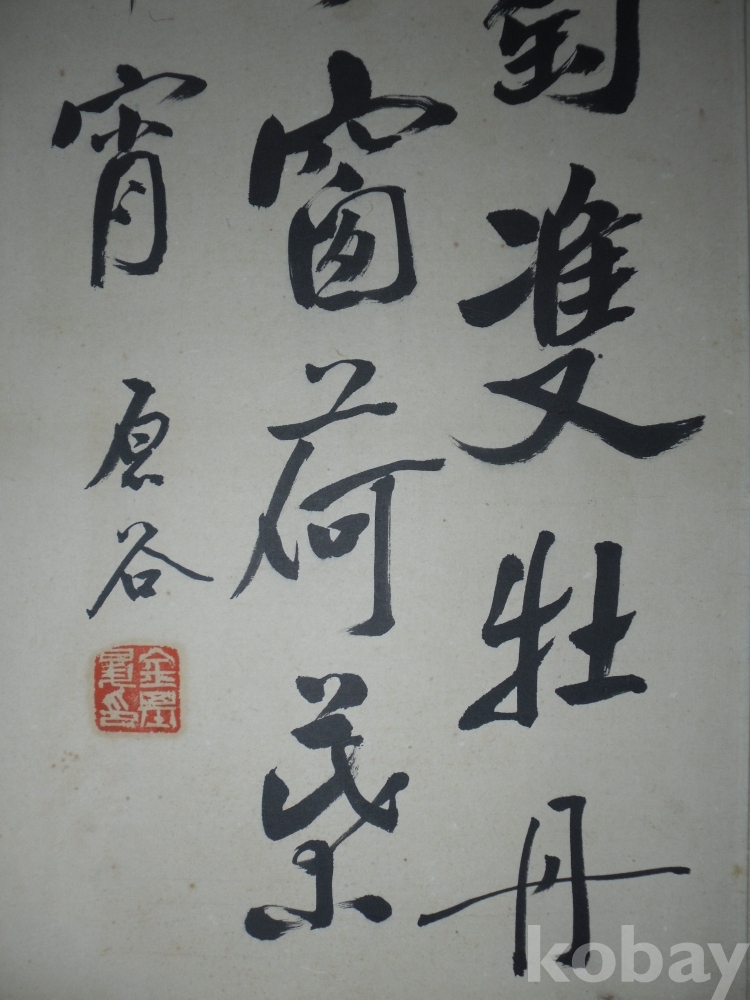 雙牡丹
窗荷葉
宵
原谷
kobay